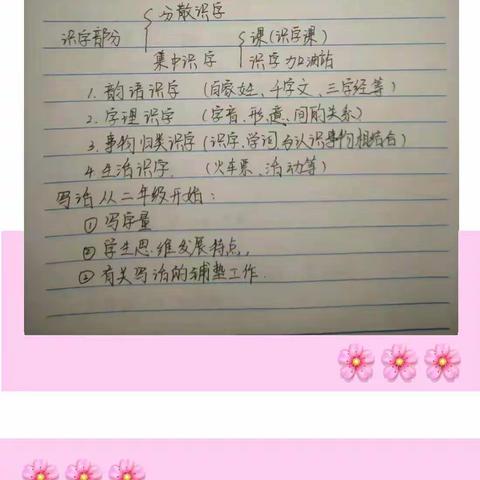 分散识字
识字部分
课(识字课)
集中识字
识字加油站
1. 韵语识字 (百家姓、千字文、三字经等)
2. 字理识字 (字音、形、意、间的关系)
3. 事物归类识字(识字、学词与认识事物相结合)
4. 生活识字. (火车票、活动等)
写话从二年级开始:
① 写字量
② 学生思维发展特点,
③ 有关写话的铺垫工作.